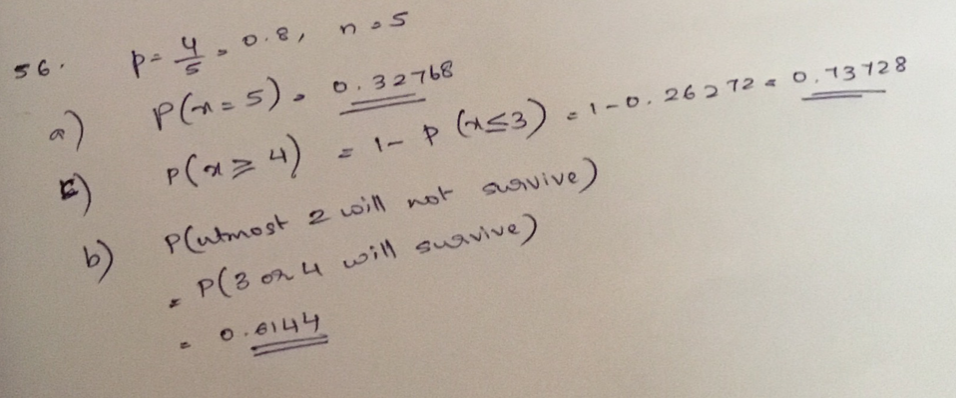 56. p = 4/5 = 0.8, n = 5
a) P(x = 5) = 0.32768
c) P(x ≥ 4) = 1 - P (x ≤ 3) = 1 - 0.26272 = 0.73728
b) P(utmost 2 will not survive)
= P(3 or 4 will survive)
= 0.6144